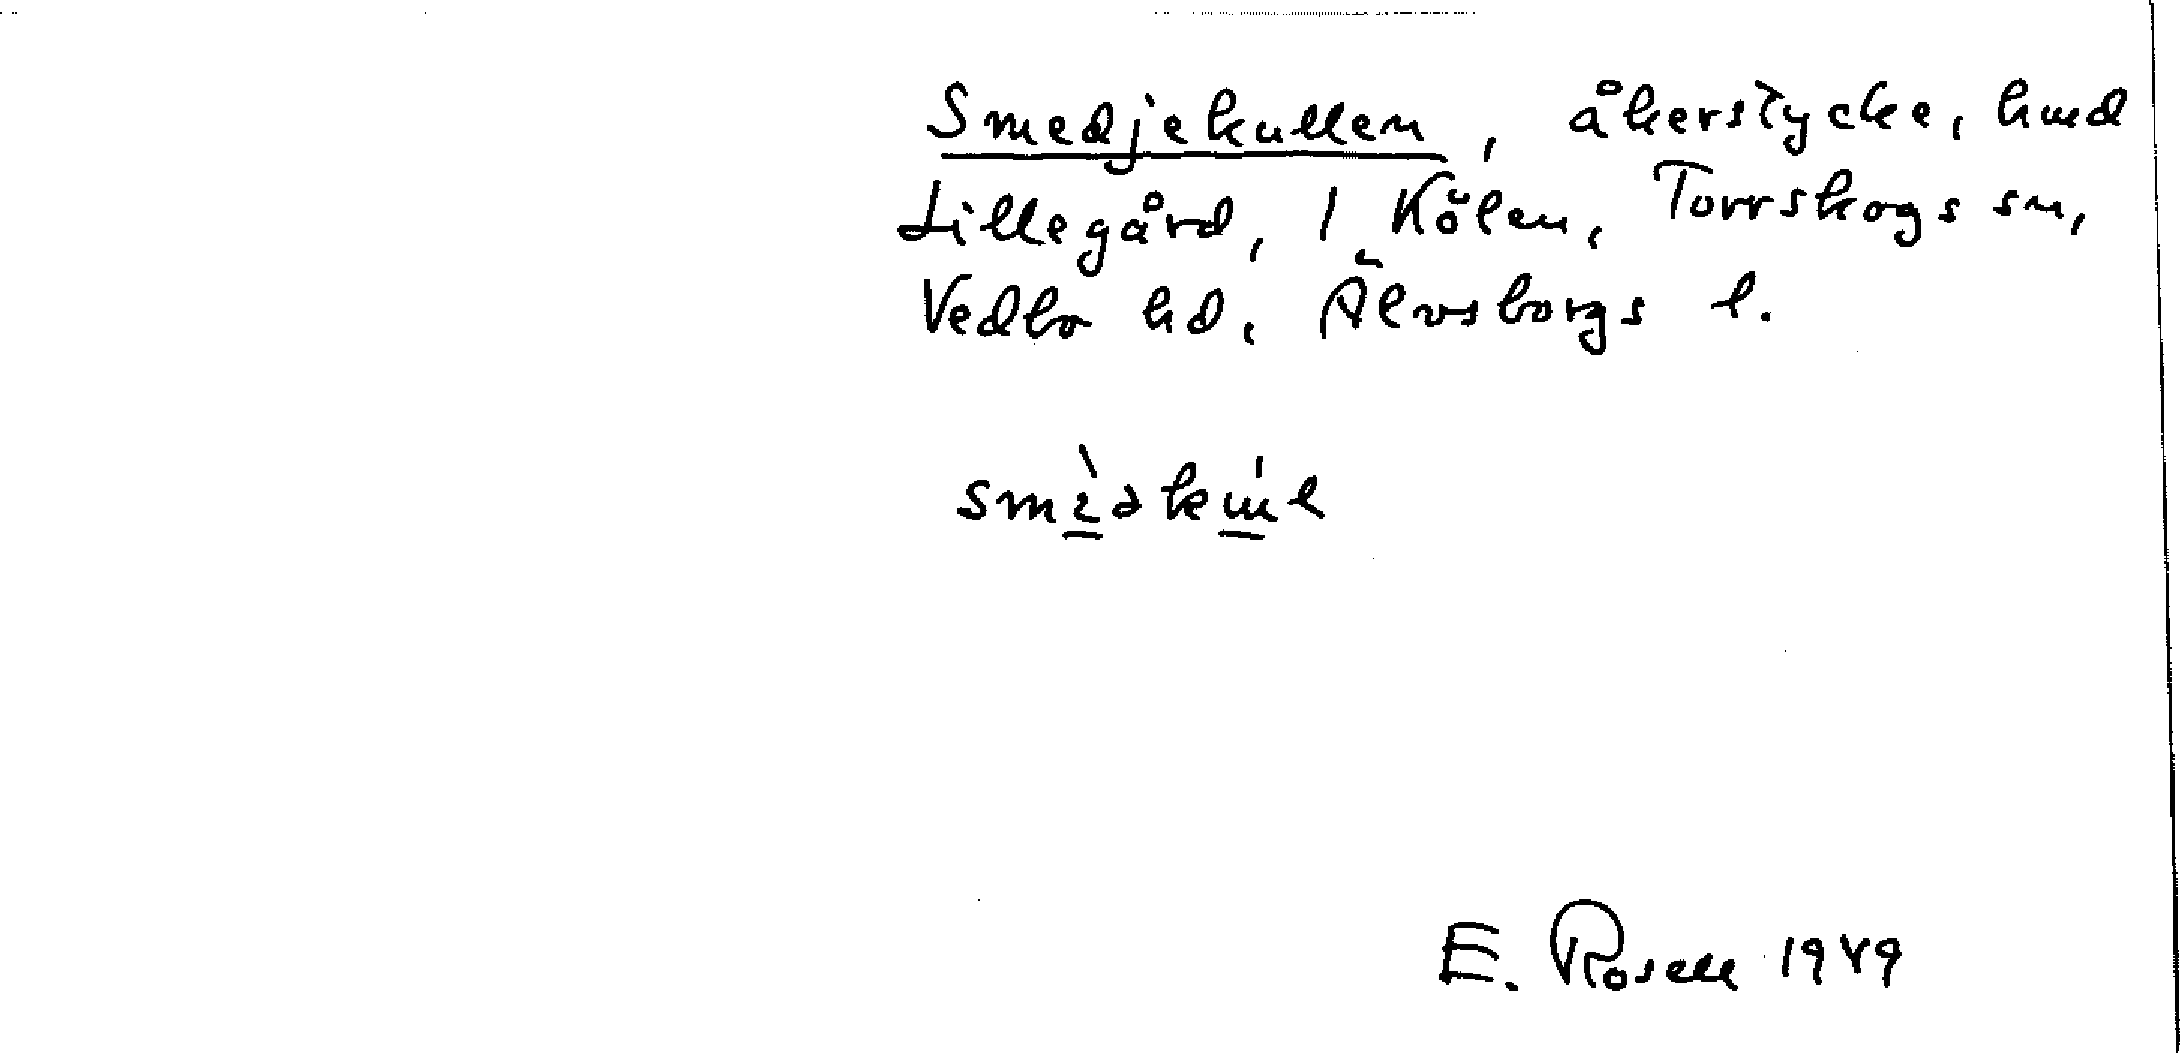 Smedjekullen, åkerstycke, hmd
Lillegård, 1 Kölen, Torrskogs sn,
Vedbo hd, Älvsborgs l.
E. Rosell 1949